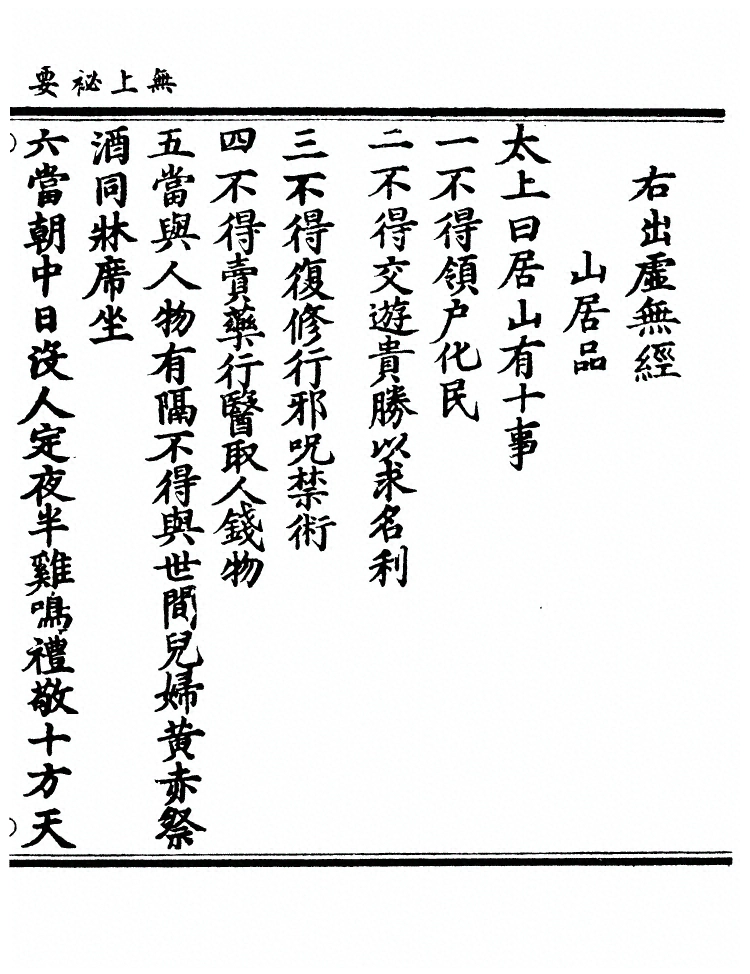 無上祕要
右出虛無經
山居品
太上曰居山有十事
一不得領户化民
二不得交遊貴勝以求名利
三不得復修行邪呪禁術
四不得賣藥行醫取人錢物
五當與人物有隔不得與世間兒婦黄赤祭
酒同牀席坐
六當朝中日沒人定夜半雞鳴禮敬十方天